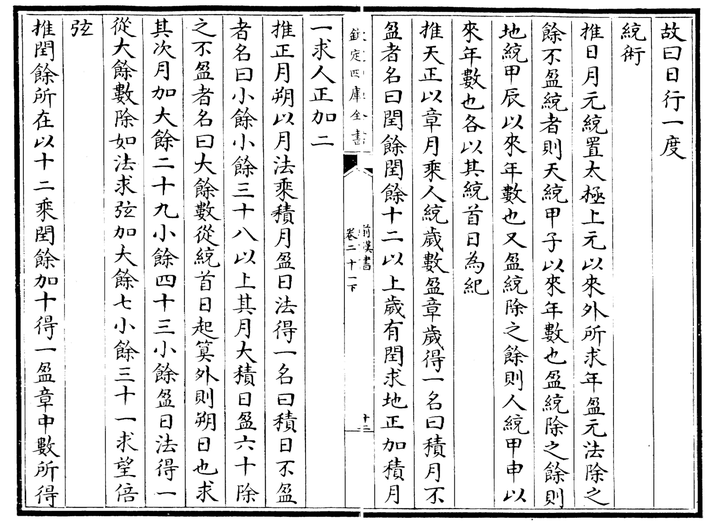 故曰日行一度
統術
推日月元統置太極上元以來外所求年盈元法除之
餘不盈統者則天統甲子以來年數也盈統除之餘則
地統甲辰以來年數也又盈統除之餘則人統甲申以
來年數也各以其統首日為紀
推天正以章月乘人統歲數盈章歲得一名曰積月不
盈者名曰閏餘閏餘十二以上歲有閏求地正加積月
欽定四庫全書
前漢書
卷二十一下
十三
一求人正加二
推正月朔以月法乘積月盈日法得一名曰積日不盈
者名曰小餘小餘三十八以上其月大積日盈六十除
之不盈者名曰大餘數從統首日起算外則朔日也求
其次月加大餘二十九小餘四十三小餘盈日法得一
從大餘數除如法求弦加大餘七小餘三十一求望倍
弦
推閏餘所在以十二乘閏餘加十得一盈章中數所得